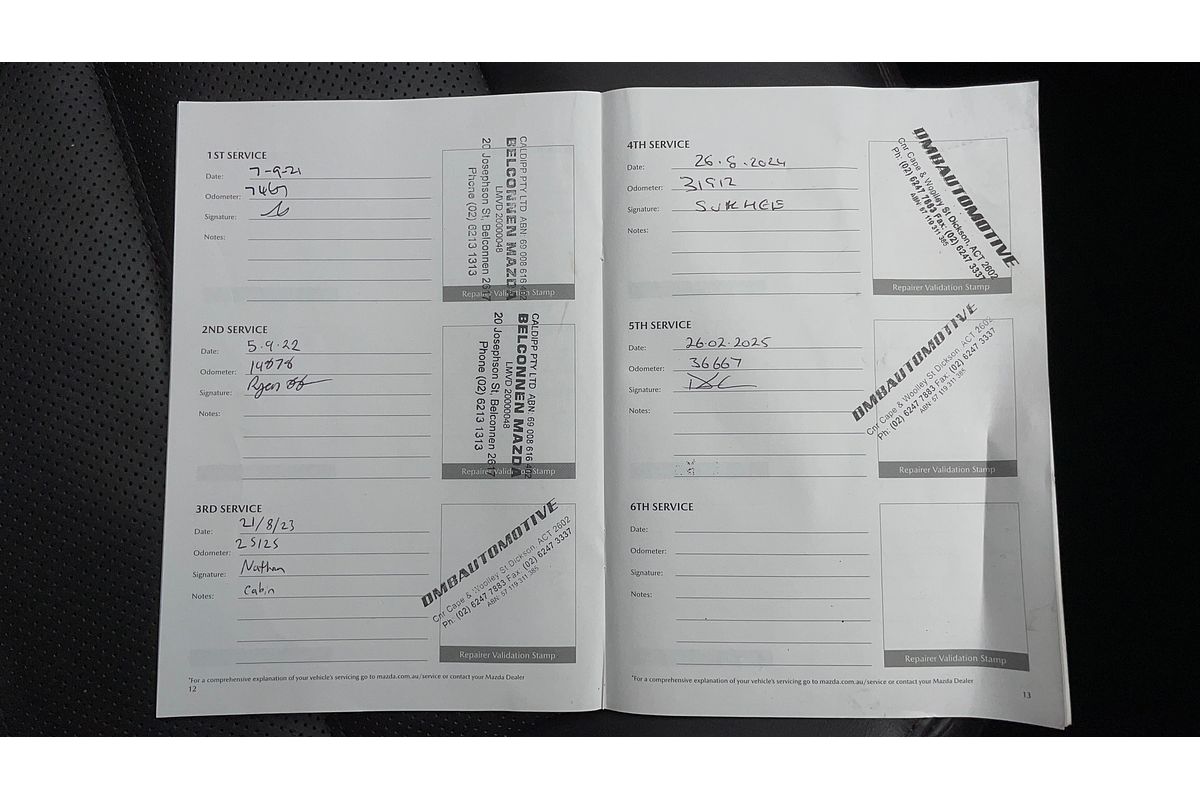 1ST SERVICE
Date: 7-9-21
Odometer: 7467
Signature:
Notes:
CALDIPP PTY LTD ABN: 69 008 616
BELCONNEN MAZDA
LMVD 20000048
20 Josephson St, Belconnen 2617
Phone (02) 6213 1313
Repairer Validation Stamp
2ND SERVICE
Date: 5.9.22
Odometer: 14878
Signature: Ryan
Notes:
CALDIPP PTY LTD ABN: 69 008 616
BELCONNEN MAZDA
LMVD 20000048
20 Josephson St, Belconnen 2617
Phone (02) 6213 1313
Repairer Validation Stamp
3RD SERVICE
Date: 21/8/23
Odometer: 25125
Signature: Nathan
Notes: Cabin
DMBAUTOMOTIVE
Cnr Cape & Woolley St Dickson, ACT 2602
Ph: (02) 6247 7883 Fax: (02) 6247 3337
ABN: 57 119 311 385
Repairer Validation Stamp
*For a comprehensive explanation of your vehicle's servicing go to mazda.com.au/service or contact your Mazda Dealer
12
4TH SERVICE
Date: 26.8.2024
Odometer: 31912
Signature: SUKHEE
Notes:
DMBAUTOMOTIVE
Cnr Cape & Woolley St Dickson, ACT 2602
Ph: (02) 6247 7883 Fax: (02) 6247 3337
ABN: 57 119 311 385
Repairer Validation Stamp
5TH SERVICE
Date: 26.02.2025
Odometer: 36667
Signature:
Notes:
DMBAUTOMOTIVE
Cnr Cape & Woolley St Dickson, ACT 2602
Ph: (02) 6247 7883 Fax: (02) 6247 3337
ABN: 57 119 311 385
Repairer Validation Stamp
6TH SERVICE
Date:
Odometer:
Signature:
Notes:
Repairer Validation Stamp
*For a comprehensive explanation of your vehicle's servicing go to mazda.com.au/service or contact your Mazda Dealer
13